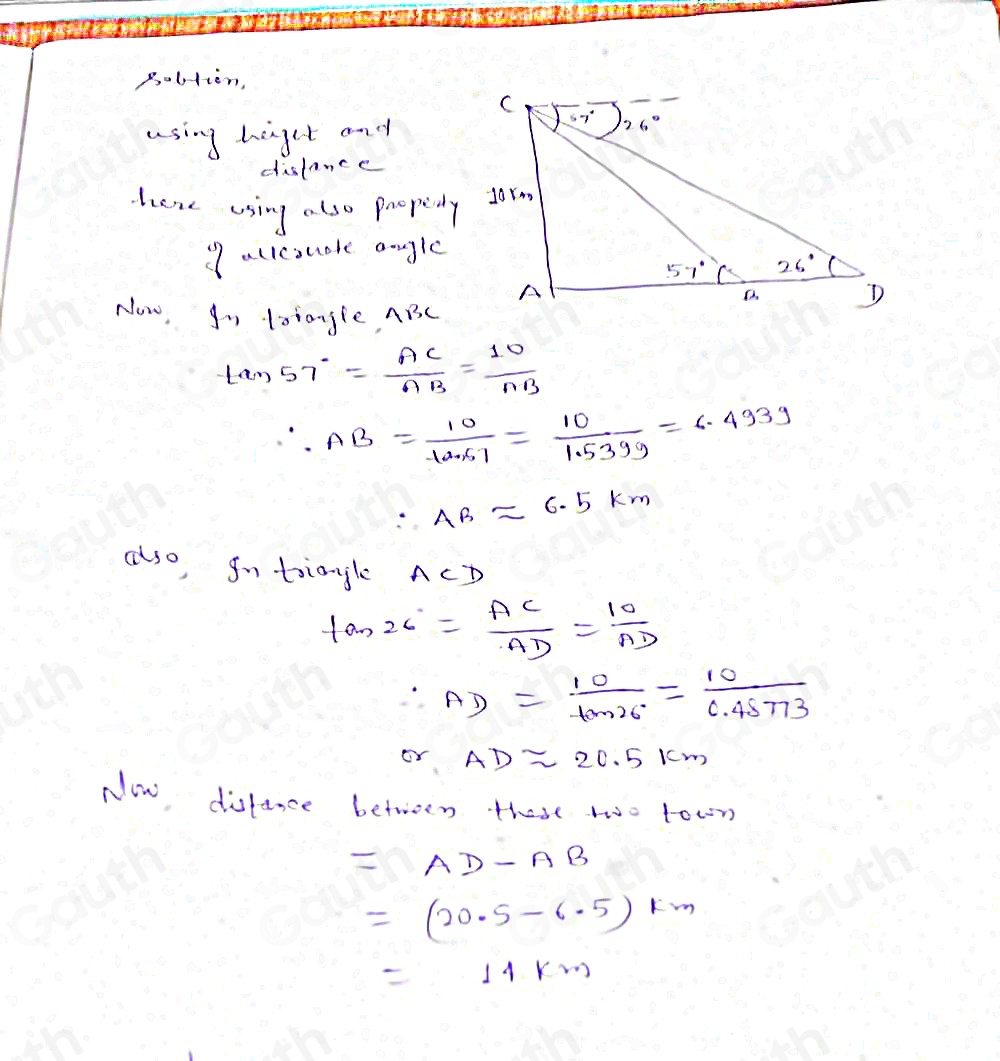 Solution,
using height and
distance
here using also property
of alternate angle
C 57° 26°
10 km
57° 26°
A B D
Now, In triangle ABC
tan 57° = AC/AB = 10/AB
∴ AB = 10/tan57 = 10/1.5399 = 6.4939
∴ AB ≈ 6.5 km
also, In triangle ACD
tan 26° = AC/AD = 10/AD
∴ AD = 10/tan26° = 10/0.48773
or AD ≈ 20.5 km
Now, distance between these two town
= AD - AB
= (20.5 - 6.5) km
= 14 km